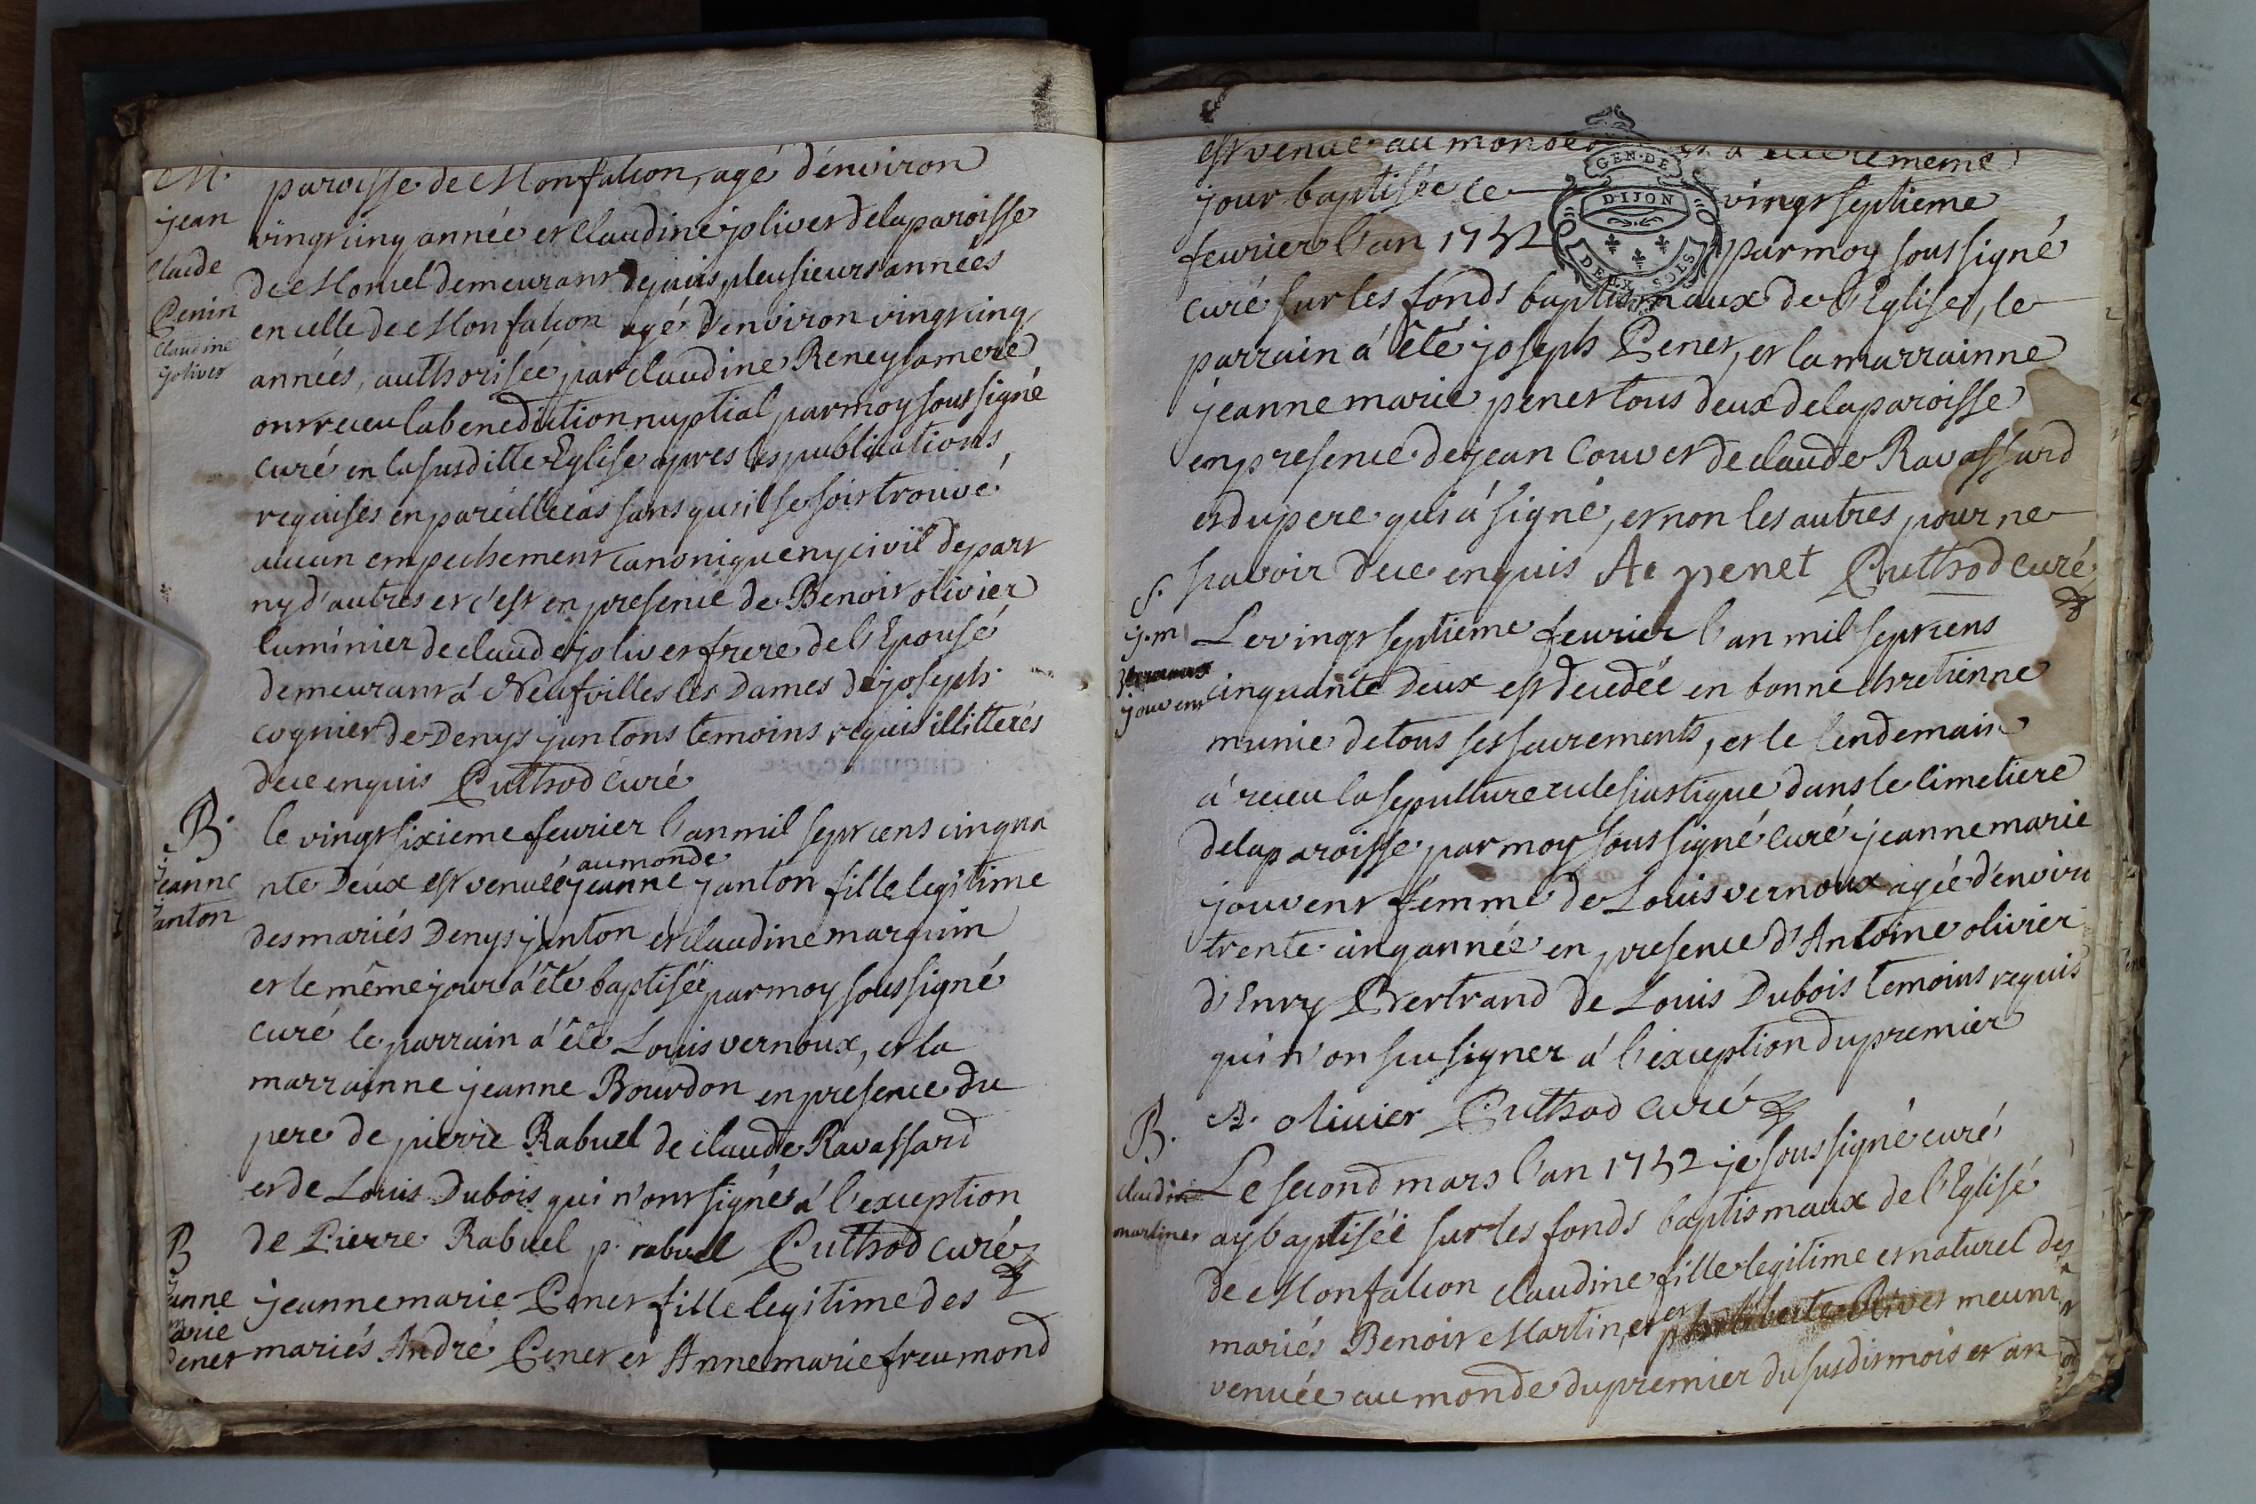 M.
jean
Claude
Penin
Claudine
joliver
paroisse de Monfalcon, agé d'environ
vingt cinq année et Claudine jolivet de la paroisse
de Monuel demeurant depuis pleusieurs années
en celle de Monfalcon agé d'environ vingt cinq
années, authorisée par claudine Reney sa mere
ont receu la benediction nuptial par moy sous signé
curé en la susditte Eglise apres les publications
requises en pareille cas sans qu'il se soit trouvé
aucun empechement canonique ny civil de part
ny d'autres et c'est en presence de Benoit olivier
luminier de claude jolivet frere de l'Epousé
demeurant á Neufvilles les Dames de joseph
cognier de Denys janton temoins requis illitterés
de ce enquis Cuthod curé
B.
jeanne
janton
le vingt sixieme fevrier l'an mil sept cens cinqua
au monde
nte Deux est venuée jeanne janton fille legitime
des mariés Denys janton et claudine marguin
et le même jour á été baptisée par moy sous signé
curé le parrain á été Louis vernoux, et la
marrainne jeanne Bourdon en présence du
pere de pierre Rabuel de claude Ravassard
et de Louis Dubois qui n'ont signés á l'exception
de Pierre Rabuel p. rabuel Cuthod curé
B
jeanne
marie
Penet
jeanne marie Penet fille legitime des
mariés André Penet et Anne marie freumond
est venue au monde même
jour baptisée ce vingt septieme
fevrier l'an 1752 par moy sous signé
GEN. DE
DIJON
DEUX SOLS
curé sur les fonds baptismaux de l'Eglise, le
parrain á été joseph Penet, et la marrainne
jeanne marie penet tous deux de la paroisse
en presence de jean Couvet de claude Ravassard
et du pere qui á signé, et non les autres pour ne
savoir de ce enquis Ae penet Cuthod curé
S.
j. m
jouvent
Le vingt septieme fevrier l'an mil sept cens
cinquante Deux est decedée en bonne chretienne
munie de tous ses sacrements, et le lendemain
á receu la sepulture eclesiastique dans le cimetiere
de la paroisse par moy sous signé curé jeanne marie
jouvent femme de Louis vernoux agée d'enviro
trente cinq année en presence d'Antoine olivier
d'Enry Bertrand de Louis Dubois temoins requis
qui n'on scu signer á l'exception du premier
A. olivier Cuthod curé
B.
claudine
martinet
Le second mars l'an 1752 je sous signé curé
ay baptisée sur les fonds baptismaux de l'Eglisé
de Monfalcon claudine fille legitime et naturel des
mariés Benoit Martin, et
venuée au monde du premier du susdit mois et an